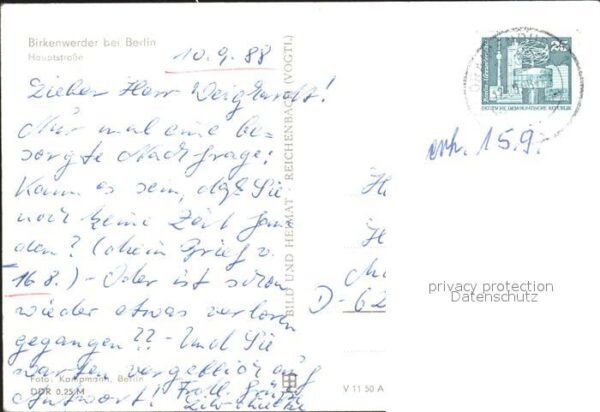 Birkenwerder bei Berlin
Hauptstraße
10.9.88
Lieber Herr Weighardt!
Nur mal eine be-
sorgte Nachfrage:
Kann es sein, daß Sie
noch keine Zeit fan-
den? (Mein Brief v.
16.8.) - Oder ist schon
wieder etwas verloren
gegangen?? - Und Sie
warten vergeblich auf
Antwort!
Frdl. Grüße
Foto: Kampmann, Berlin
DDR 0,25 M
BILD UND HEIMAT · REICHENBACH (VOGTL)
V 11 50 A
25
Berlin, Alexanderplatz
DEUTSCHE DEMOKRATISCHE REPUBLIK
erh. 15.9.
D-62
privacy protection
Datenschutz